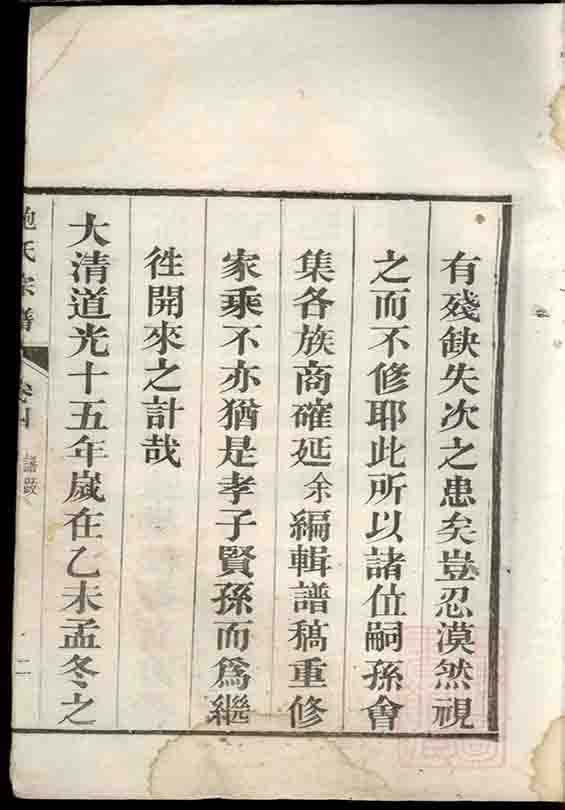 有殘缺失次之患矣豈忍漠然視
之而不修耶此所以諸位嗣孫會
集各族商確延余編輯譜稿重修
家乘不亦猶是孝子賢孫而爲繼
徃開來之計哉
大清道光十五年嵗在乙未孟冬之
鮑氏宗譜
譜跋
二